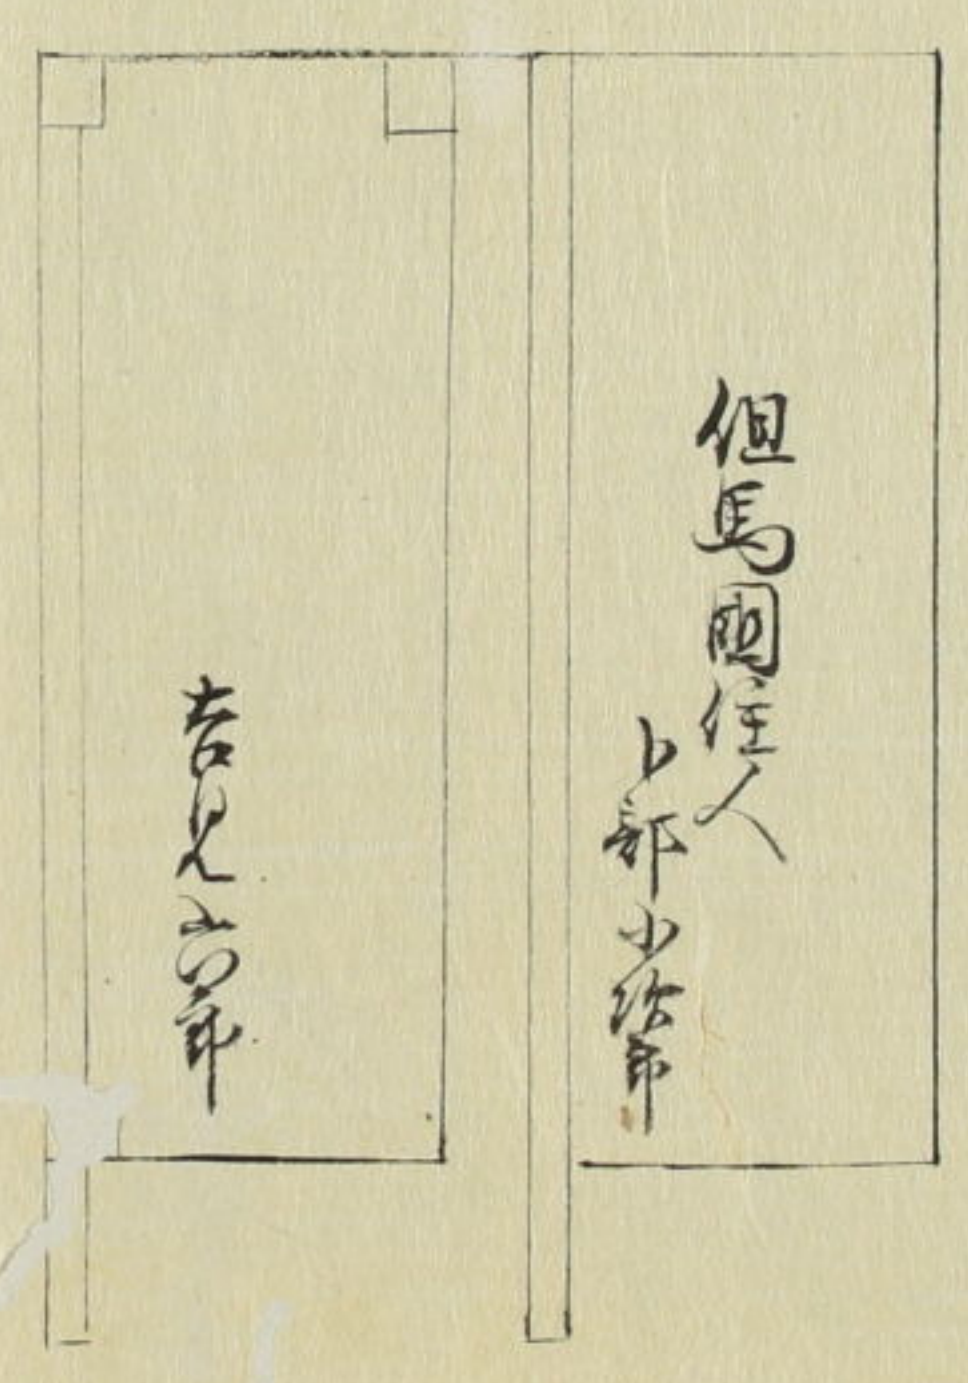 但馬國住人
卜部小次郎
吉見六郎